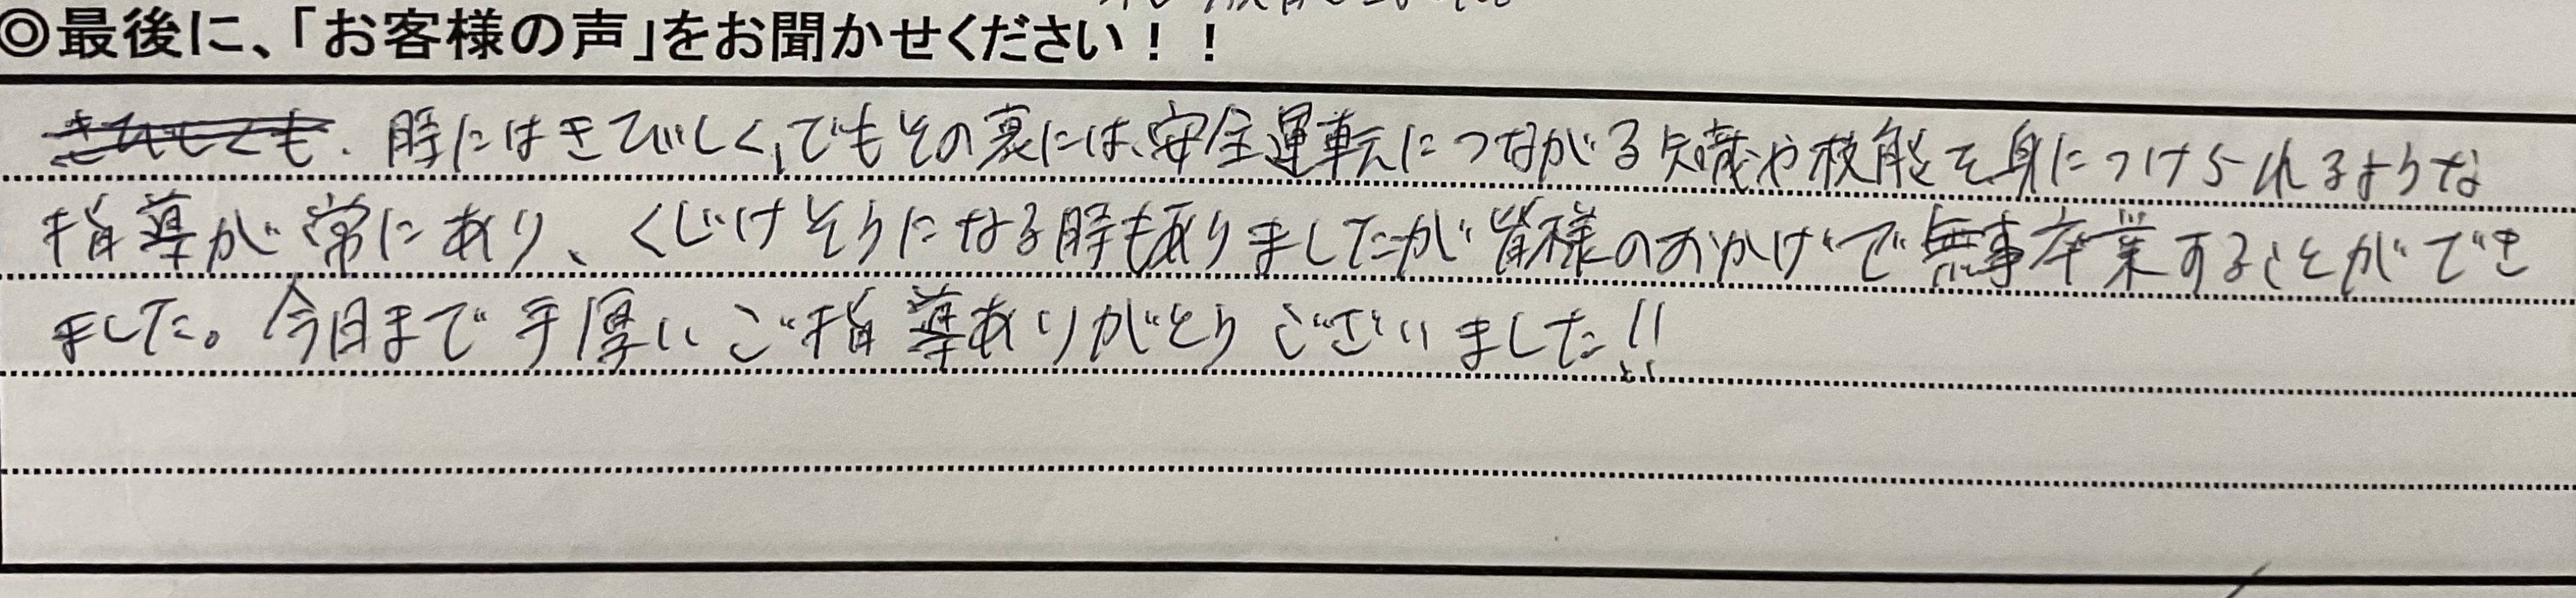 ◎最後に、「お客様の声」をお聞かせください！！
時にはきびしく、でもその裏には、安全運転につながる知識や技能を身につけられるような
指導が常にあり、くじけそうになる時も有りましたが皆様のおかげで無事卒業することができ
ました。今日まで手厚いご指導ありがとうございました!!